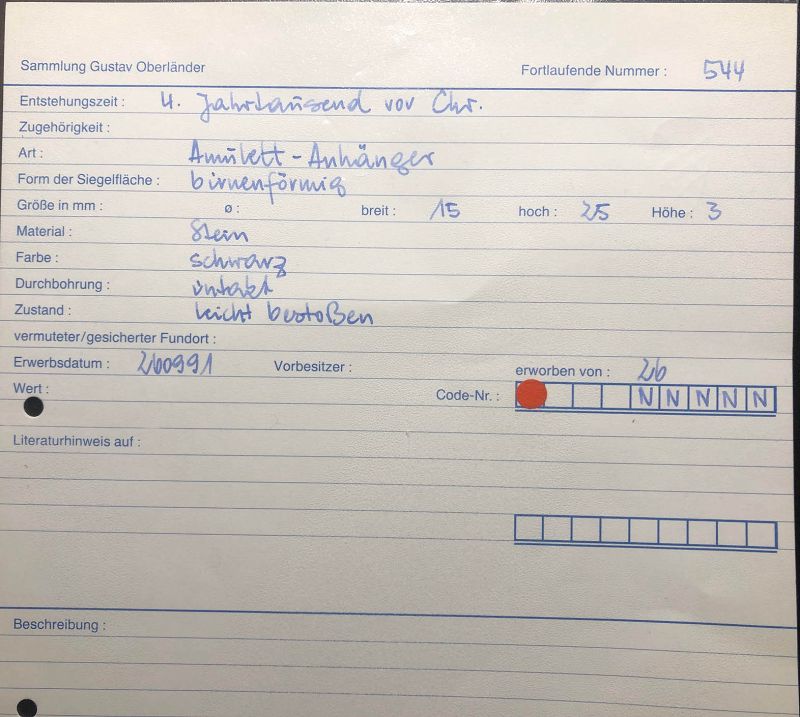 Sammlung Gustav Oberländer Fortlaufende Nummer : 544
Entstehungszeit : 4. Jahrtausend vor Chr.
Zugehörigkeit :
Art : Amulett - Anhänger
Form der Siegelfläche : birnenförmig
Größe in mm : ø : breit : 15 hoch : 25 Höhe : 3
Material : Stein
Farbe : schwarz
Durchbohrung : intakt
Zustand : leicht bestoßen
vermuteter/gesicherter Fundort :
Erwerbsdatum : 260991 Vorbesitzer : erworben von : 26
Wert : Code-Nr. : N N N N N
Literaturhinweis auf :
Beschreibung :